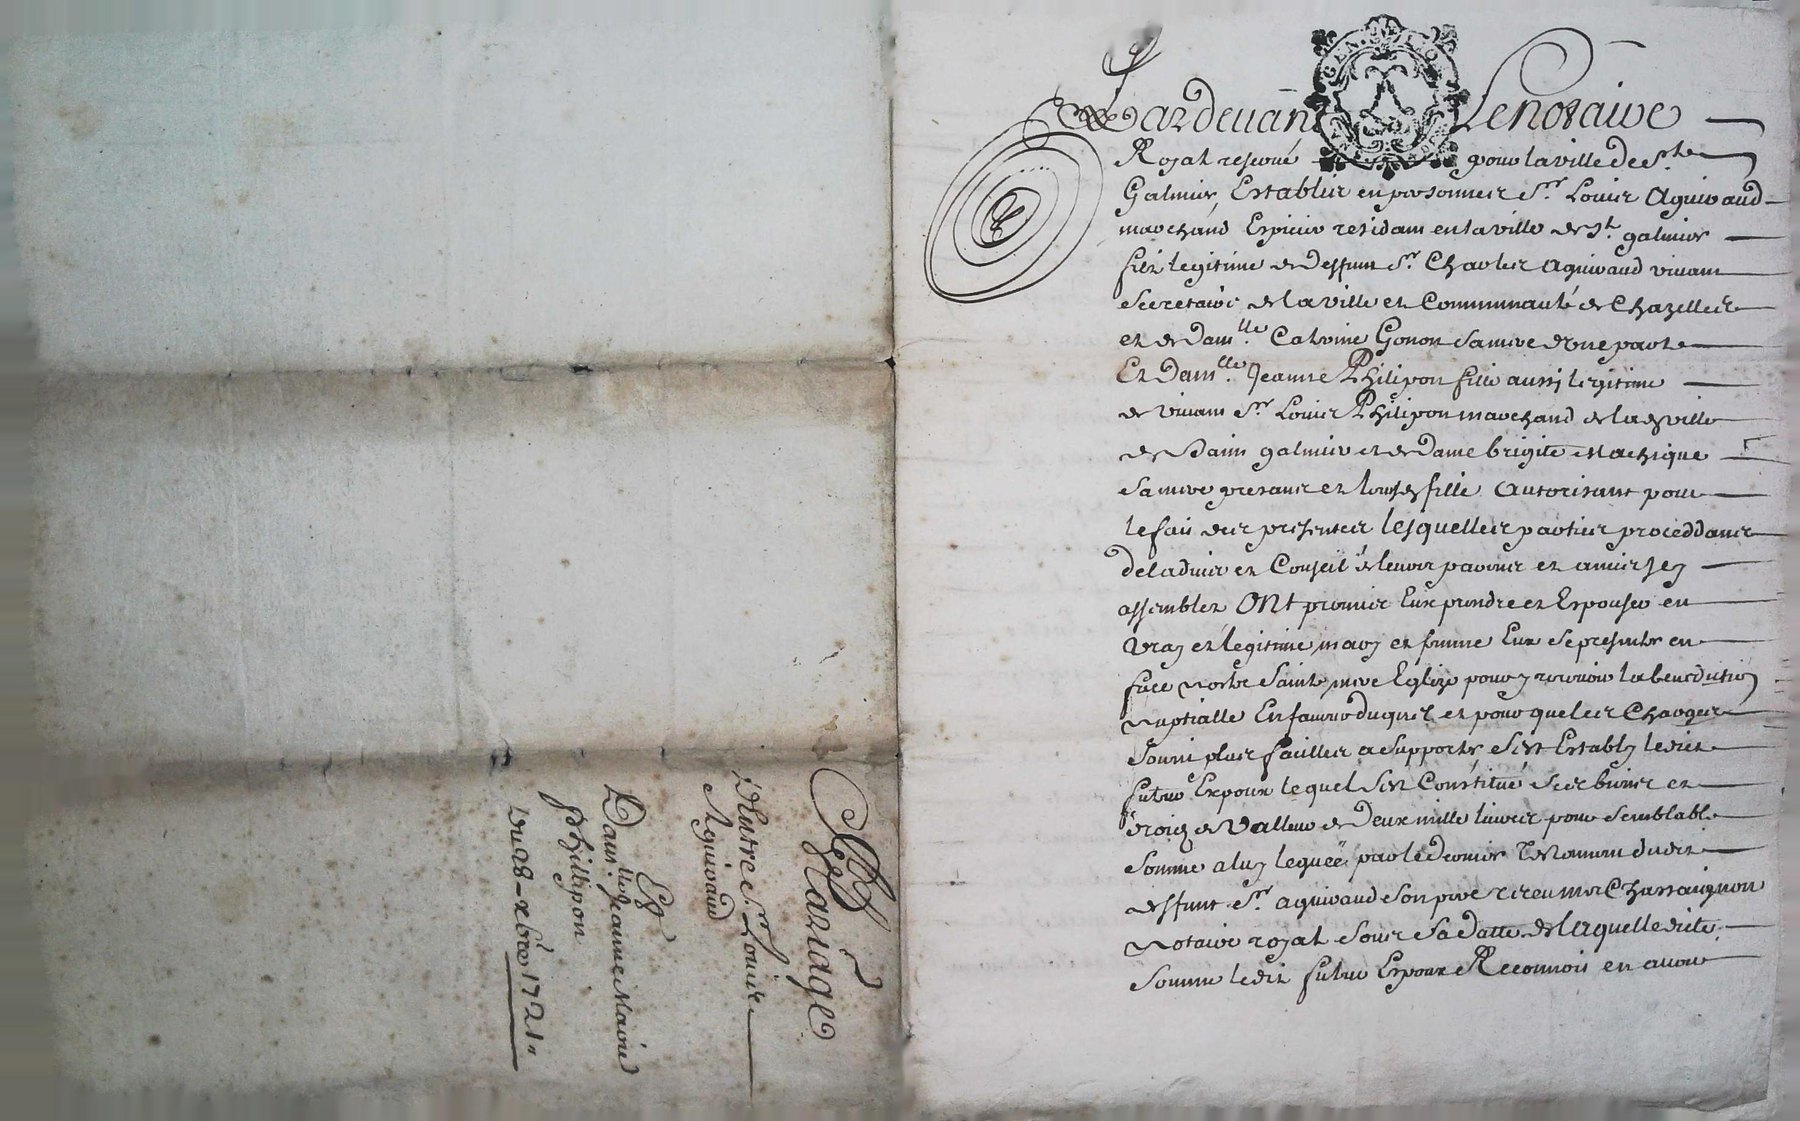 Mariage
D'entre Sr. Louis
Aguiraud
Et
Damlle. Jeanne Marie
Phillipon
Du 28 - xbre 1721
Pardevant Le notaire
Royal reservé pour la ville de St
Galmier, Establis en personnes Sr. Louis Aguiraud
marchand Espicier residant en la ville de St galmier
filz legitime de deffunt Sr. Charles Aguiraud vivant
Secretaire de la ville et Communauté de Chazelles
et de Damlle. Catrine Gonon sa mere d'une part
Et Damlle. Jeanne Philipon fille aussy legitime
de vivant Sr. Louis Philipon marchand de lad ville
de Saint galmier et de Dame brigite
sa mere presans et leurd fille autorisant pour
le fait des presentes lesquelles parties proceddans
de ladvis et Conseil de leurs parens et amis Jcy
assemblez ont promis Eux prendre et Espouser en
vray et legitime mary et femme Eux se presenter en
face nostre Sainte mere Eglize pour y recevoir la benediction
nuptialle En faveur duquel et pour que les Charges
soint plus failles a supporter s'est Establ y ledit
futur Expoux lequel s'est Constitué ses biens et
droitz de valleur de Deux mille livres pour semblable
somme a luy leguée par le dernier Testament dudit
deffunt Sr. aguiraud son pere receu Mre Chassaignon
notaire royal sous sa datte de laquelle dite
somme ledit futur Expoux Reconnoit en avoir